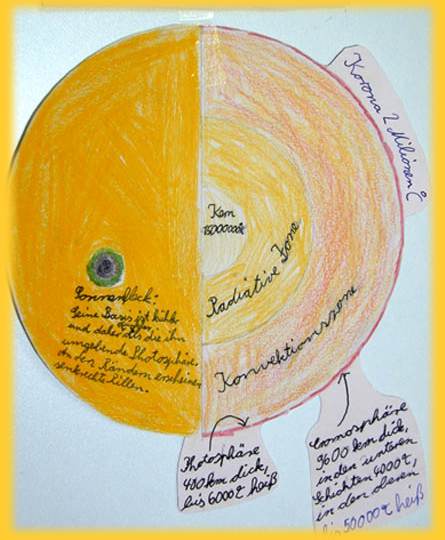 Korona 2 Milionen °C
Kern
15000000°C
Radiative Zone
Konvektionszone
Sonnenfleck:
Seine Basis ist kühler
und daler als die ihn
umgebende Photosphäre.
An den Rändern erscheinen
senkrechte Rillen.
Photosphäre
400 km dick,
bis 6000°C heiß
Cromosphäre
9600 km dick,
in den unteren
Schichten 4000°C,
in den oberen,
bis 50000°C heiß